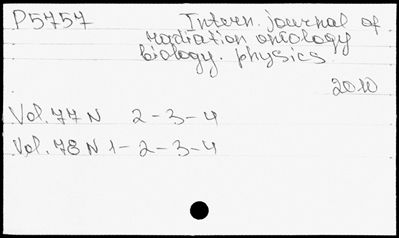 P5757
Intern. journal of
radiation oncology
biology. physics
2010
Vol. 77 N 2-3-4
Vol. 78 N 1-2-3-4